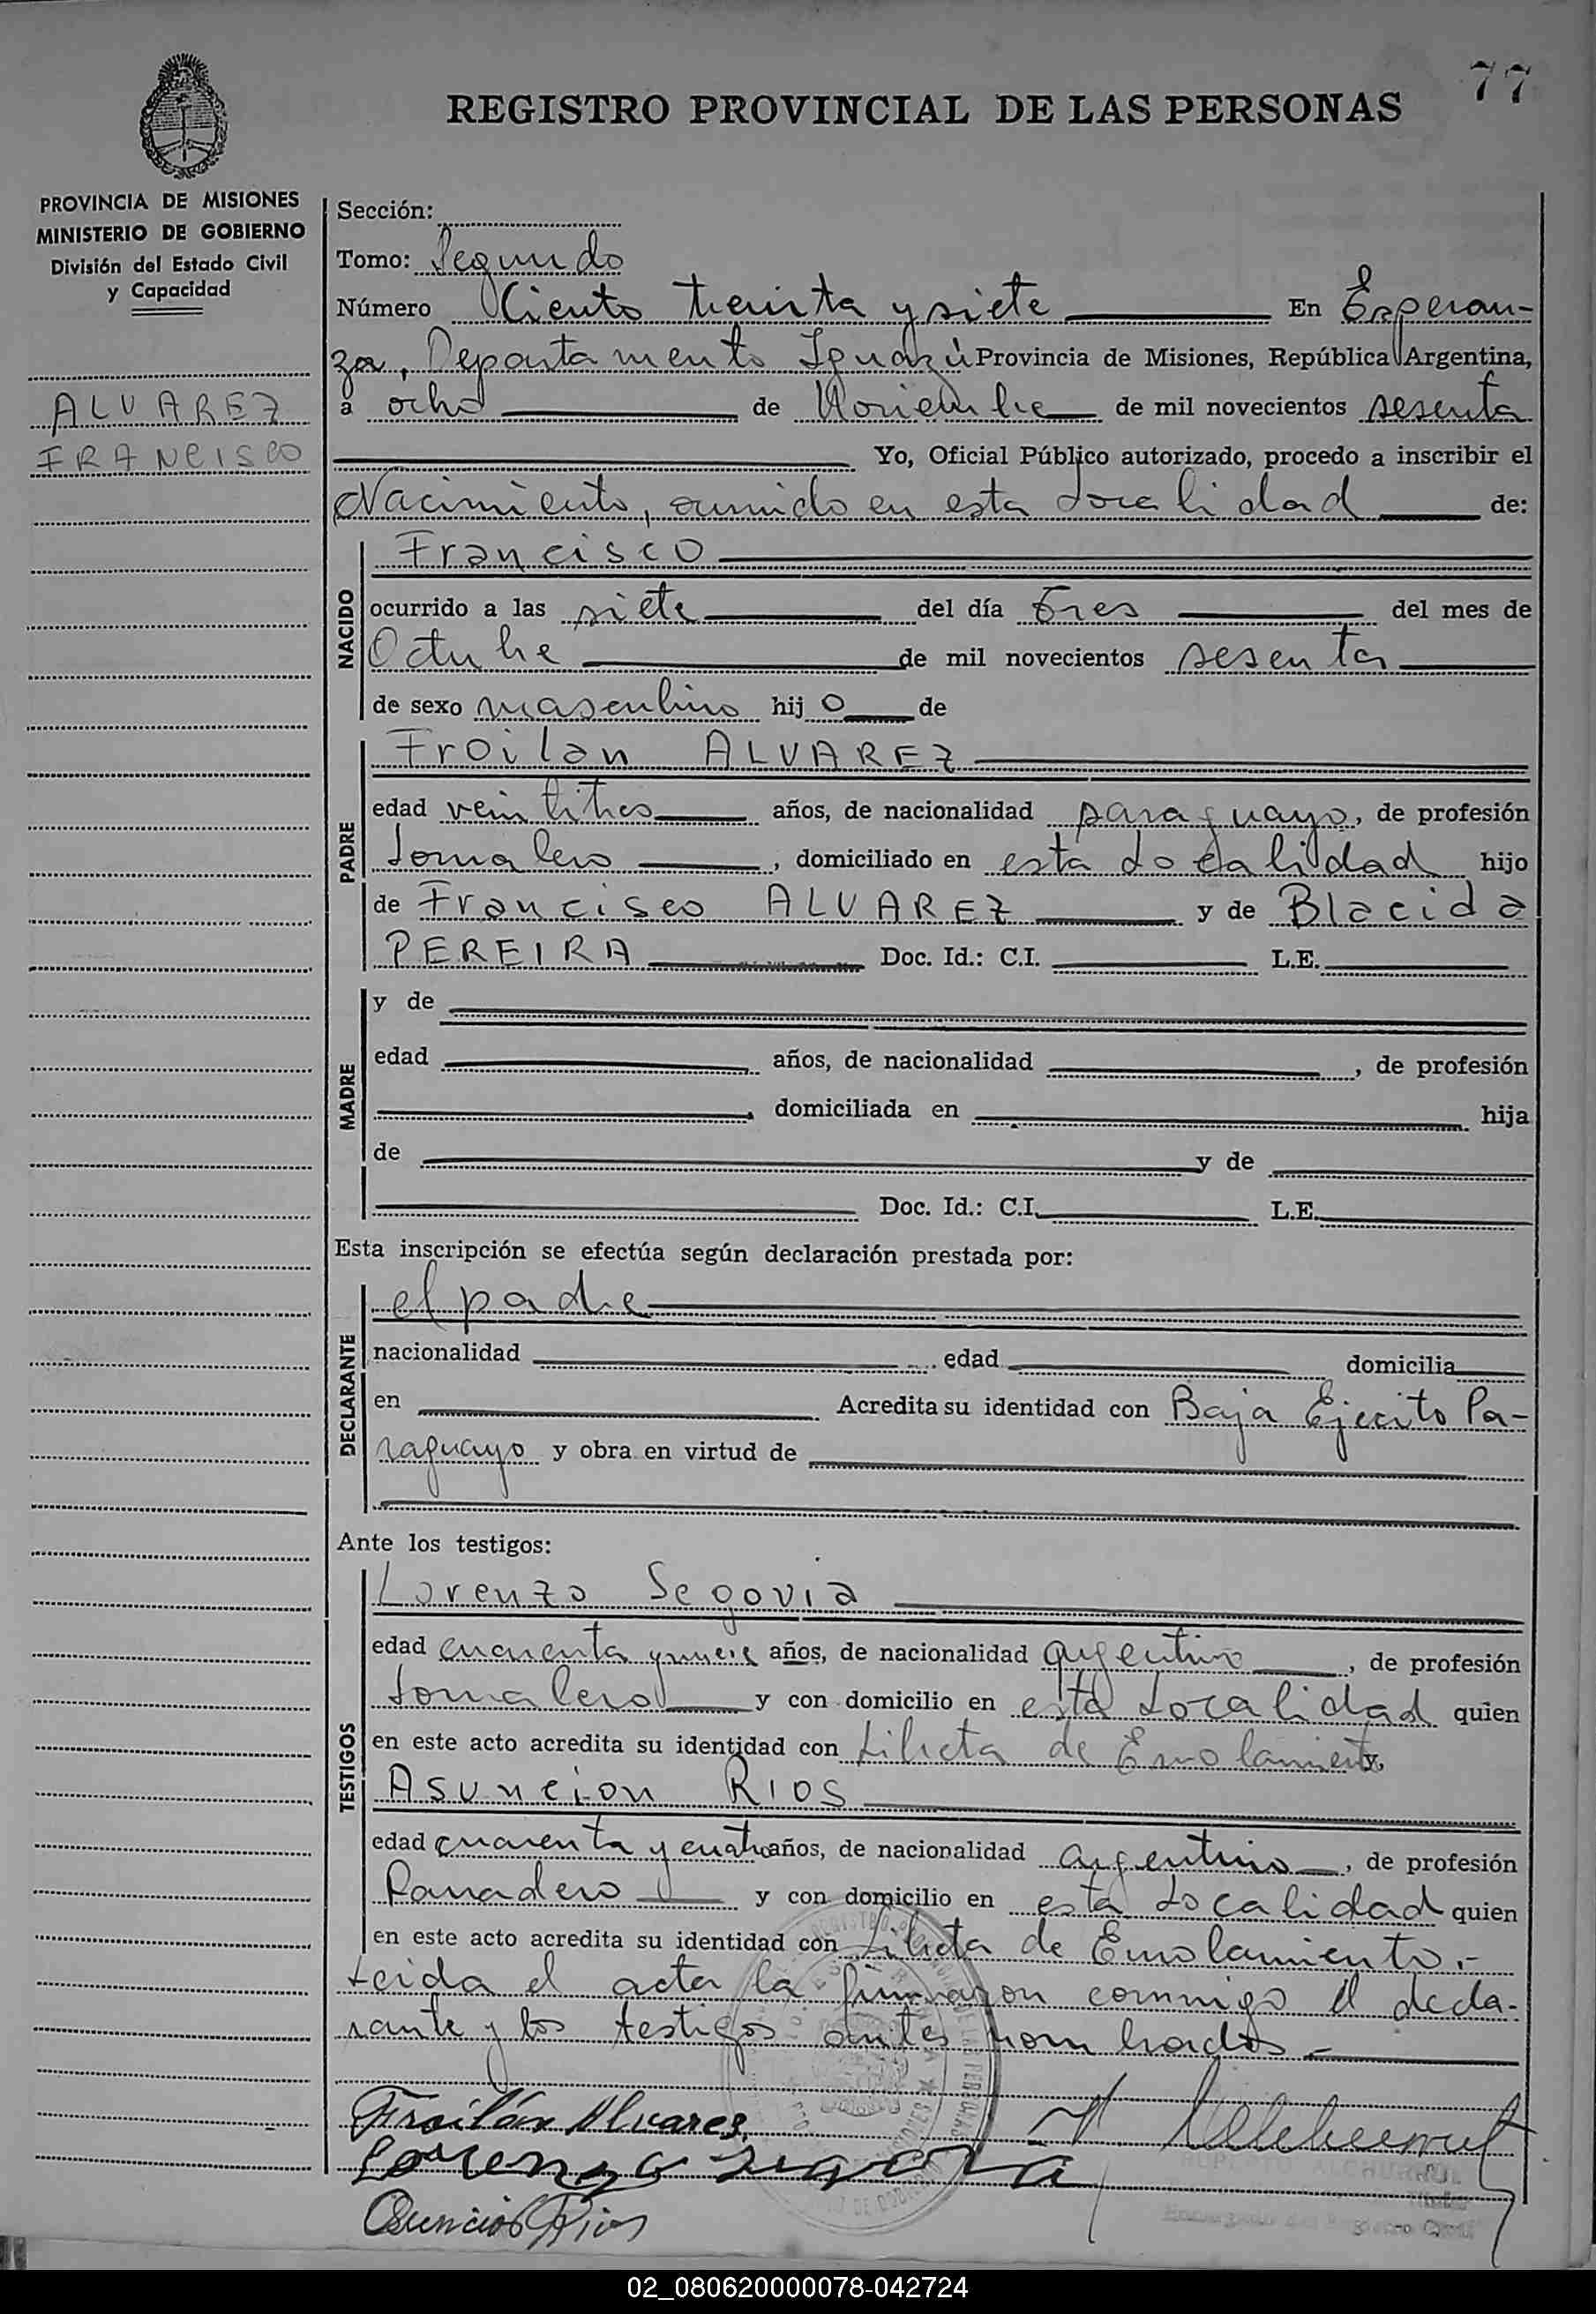 77
REGISTRO PROVINCIAL DE LAS PERSONAS
PROVINCIA DE MISIONES
MINISTERIO DE GOBIERNO
División del Estado Civil
y Capacidad
ALVAREZ
FRANCISCO
Sección:
Tomo: Segundo
Número Ciento treinta y siete En Esperan-
za, Departamento Iguazú Provincia de Misiones, República Argentina,
a ocho de Noviembre de mil novecientos sesenta
Yo, Oficial Público autorizado, procedo a inscribir el
Nacimiento, ocurrido en esta Localidad de:
NACIDO
Francisco
ocurrido a las siete del día tres del mes de
Octubre de mil novecientos sesenta
de sexo masculino hijo de
PADRE
Froilan ALVAREZ
edad veintitres años, de nacionalidad paraguayo, de profesión
Jornalero, domiciliado en esta Localidad hijo
de Francisco ALVAREZ y de Blacida
PEREIRA Doc. Id.: C.I. L.E.
MADRE
y de
edad años, de nacionalidad , de profesión
, domiciliada en hija
de y de
Doc. Id.: C.I. L.E.
Esta inscripción se efectúa según declaración prestada por:
DECLARANTE
el padre
nacionalidad edad domicilia
en Acredita su identidad con Baja Ejercito Pa-
raguayo y obra en virtud de
Ante los testigos:
TESTIGOS
Lorenzo Segovia
edad cuarenta y nueve años, de nacionalidad argentino, de profesión
Jornalero y con domicilio en esta Localidad quien
en este acto acredita su identidad con Libreta de Enrolamiento y
Asuncion RIOS
edad cuarenta y cuatro años, de nacionalidad argentino, de profesión
Panadero y con domicilio en esta Localidad quien
en este acto acredita su identidad con Libreta de Enrolamiento.-
Leida el acta la firmaron conmigo el decla-
rante y los testigos antes nombrados.-
Froilán Alvares
Lorenzo Segovia
Asuncion Rios
02_080620000078-042724